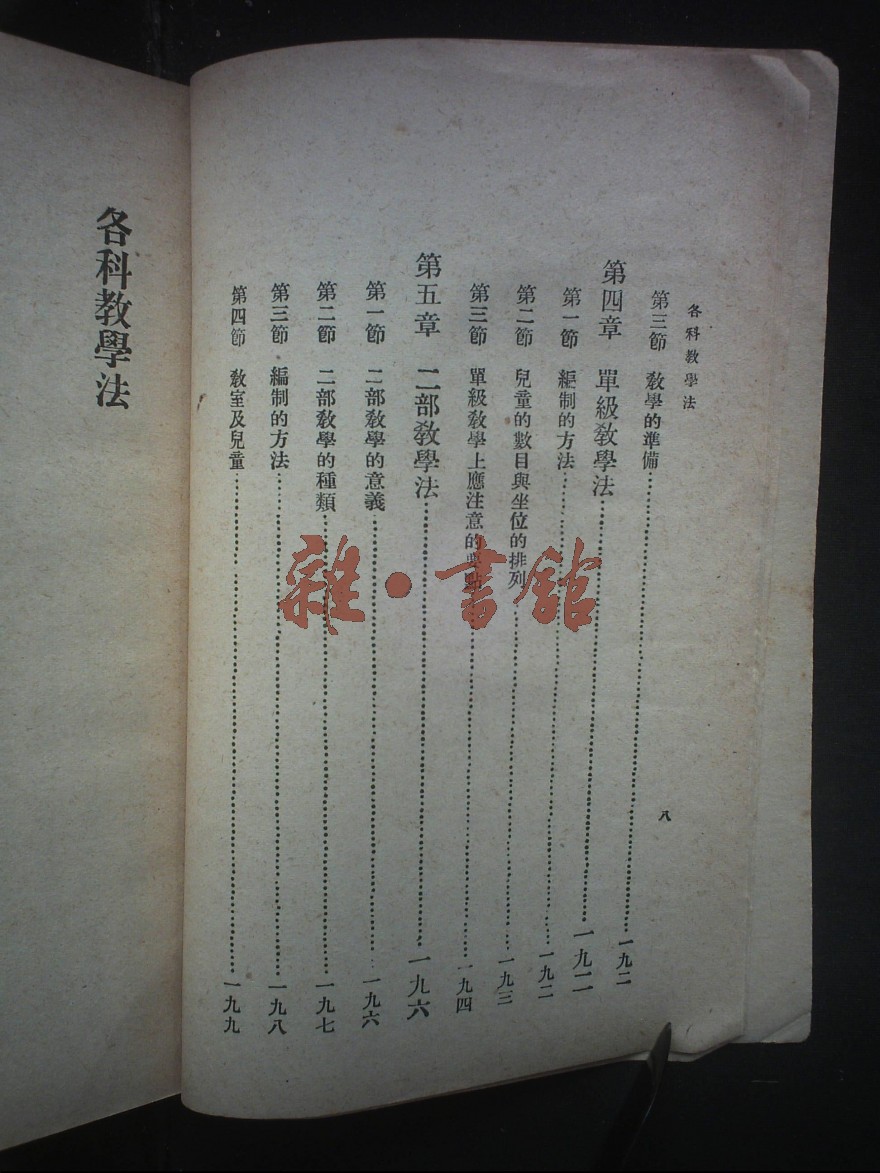 各科教學法
八
第三節 教學的準備……一九二
第四章 單級教學法……一九二
第一節 編制的方法……一九二
第二節 兒童的數目與坐位的排列……一九三
第三節 單級教學上應注意的要點……一九四
第五章 二部教學法……一九六
第一節 二部教學的意義……一九六
第二節 二部教學的種類……一九七
第三節 編制的方法……一九八
第四節 教室及兒童……一九九
各科教學法
雜·書館